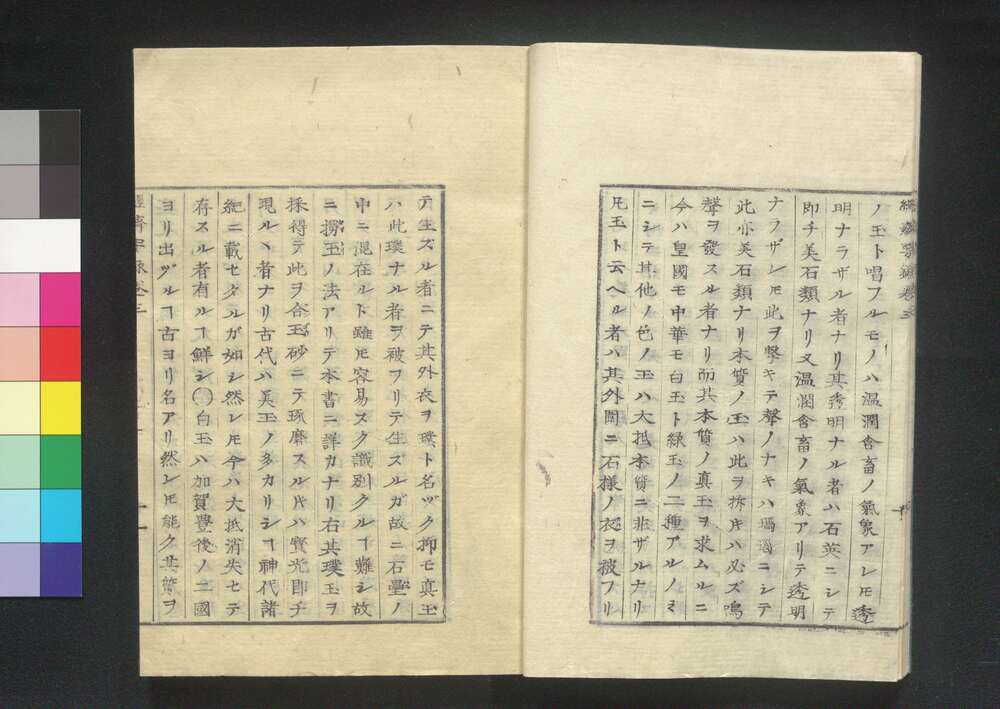 ノ玉ト唱フルモノハ温潤含畜ノ氣象アレ𪜈透
明ナラザル者ナリ其透明ナル者ハ石英ニシテ
即チ美石類ナリ又温潤含畜ノ氣象アリテ透明
ナラザレ𪜈此ヲ撃キテ聲ノナキハ瑪瑙ニシテ
此亦美石類ナリ本質ノ玉ハ此ヲ拆片ハ必ズ鳴
聲ヲ發スル者ナリ而其本質ノ真玉ヲ求ムルニ
今ハ皇國モ中華モ白玉ト緑玉ノ二種アルノミ
ニシテ其他ノ色ノ玉ハ大抵本質ニ非ザルナリ
凡玉ト云ヘル者ハ其外圍ニ石樣ノ衣ヲ被フリ
テ生ズル者ニテ其外衣ヲ璞ト名ヅク抑モ真玉
ハ此璞ナル者ヲ被フリテ生ズルガ故ニ石壘ノ
中ニ混在ルト雖𪜈容易スク識別クルヿ難シ故
ニ撈玉ノ法アリテ本書ニ詳カナリ右其璞玉ヲ
採得テ此ヲ合玉砂ニテ琢磨スル片ハ寶光即チ
現ルヽ者ナリ古代ハ美玉ノ多カリシヿ神代諸
紀ニ載セタルガ如シ然レ𪜈今ハ大抵消失セテ
存スル者有ルヿ鮮シ〇白玉ハ加賀豐後ノ二國
ヨリ出ヅルヿ古ヨリ名アリ然レ𪜈能ク其質ヲ